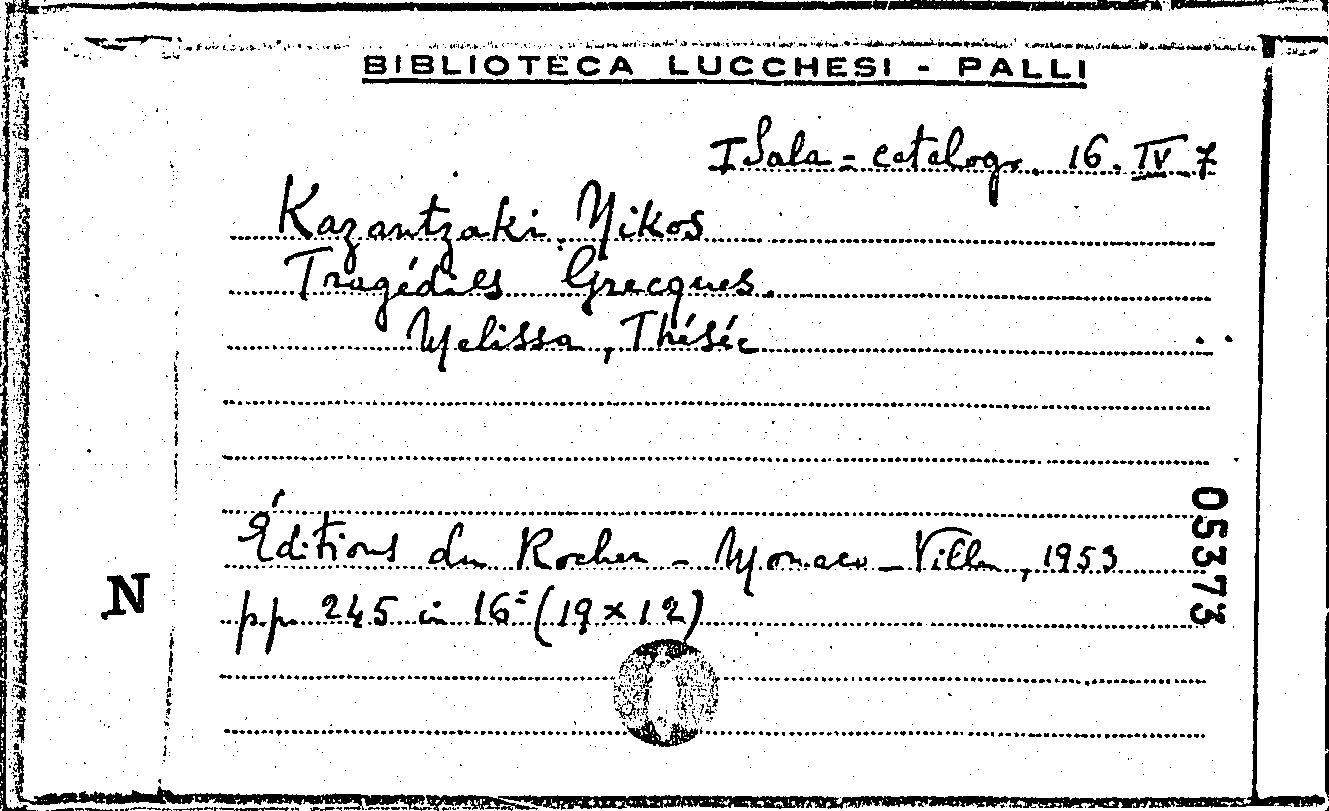 BIBLIOTECA LUCCHESI - PALLI
I Sala = catalogo. 16. IV 7
Kazantzaki Nikos
Tragédies Grecques.
Melissa, Thésée
Éditions du Rocher - Monaco - Ville, 1953
pp. 245 in 16º (19 x 12)
N
05373